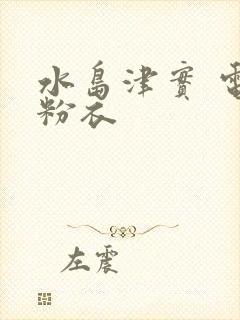 水島津實 電
粉衣
左震